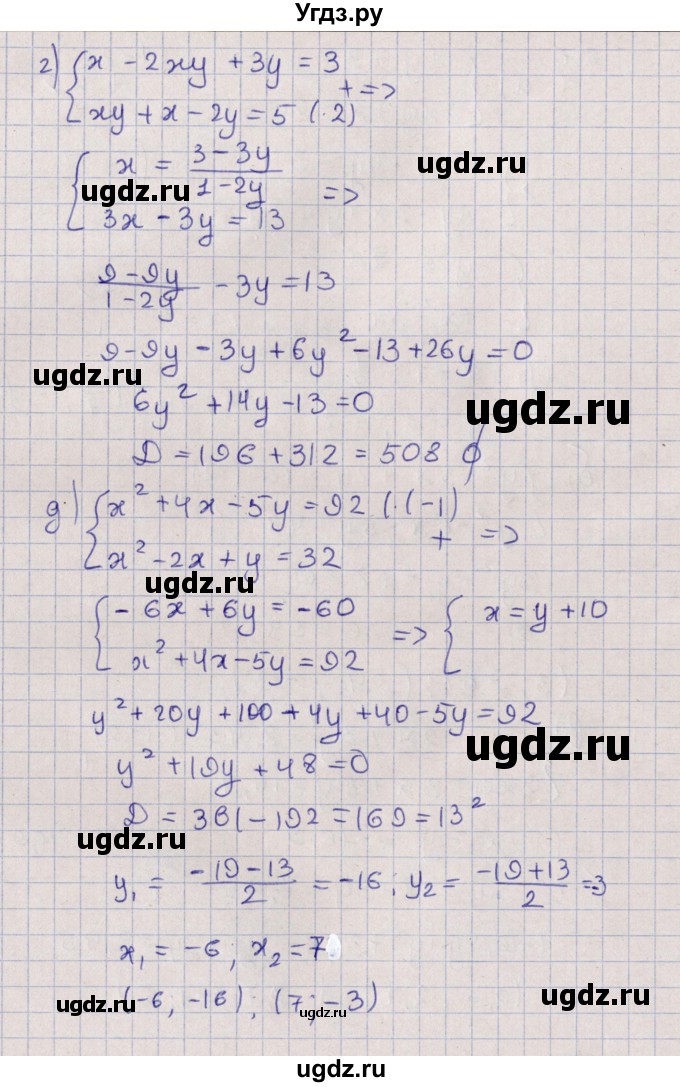 Угдз.ру
г) { x - 2xy + 3y = 3
xy + x - 2y = 5 (·2) + =>
{ x = (3 - 3y)/(1 - 2y) ugdz.ru
ugdz.ru
3x - 3y = 13 =>
(9 - 9y)/(1 - 2y) - 3y = 13
9 - 9y - 3y + 6y² - 13 + 26y = 0
ugdz.ru
6y² + 14y - 13 = 0
ugdz.ru
D = 196 + 312 = 508 ∅
д) { x² + 4x - 5y = 92 (·(-1)
x² - 2x + y = 32 + =>
ugdz.ru
{ - 6x + 6y = -60
x² + 4x - 5y = 92 => { x = y + 10
y² + 20y + 100 + 4y + 40 - 5y = 92
ugdz.ru
y² + 19y + 48 = 0
D = 361 - 192 = 169 = 13²
ugdz.ru
y₁ = (-19 - 13)/2 = -16; y₂ = (-19 + 13)/2 = -3
x₁ = -6; x₂ = 7
(-6; -16); (7; -3)
ugdz.ru
ugdz.ru
ugdz.ru
ugdz.ru